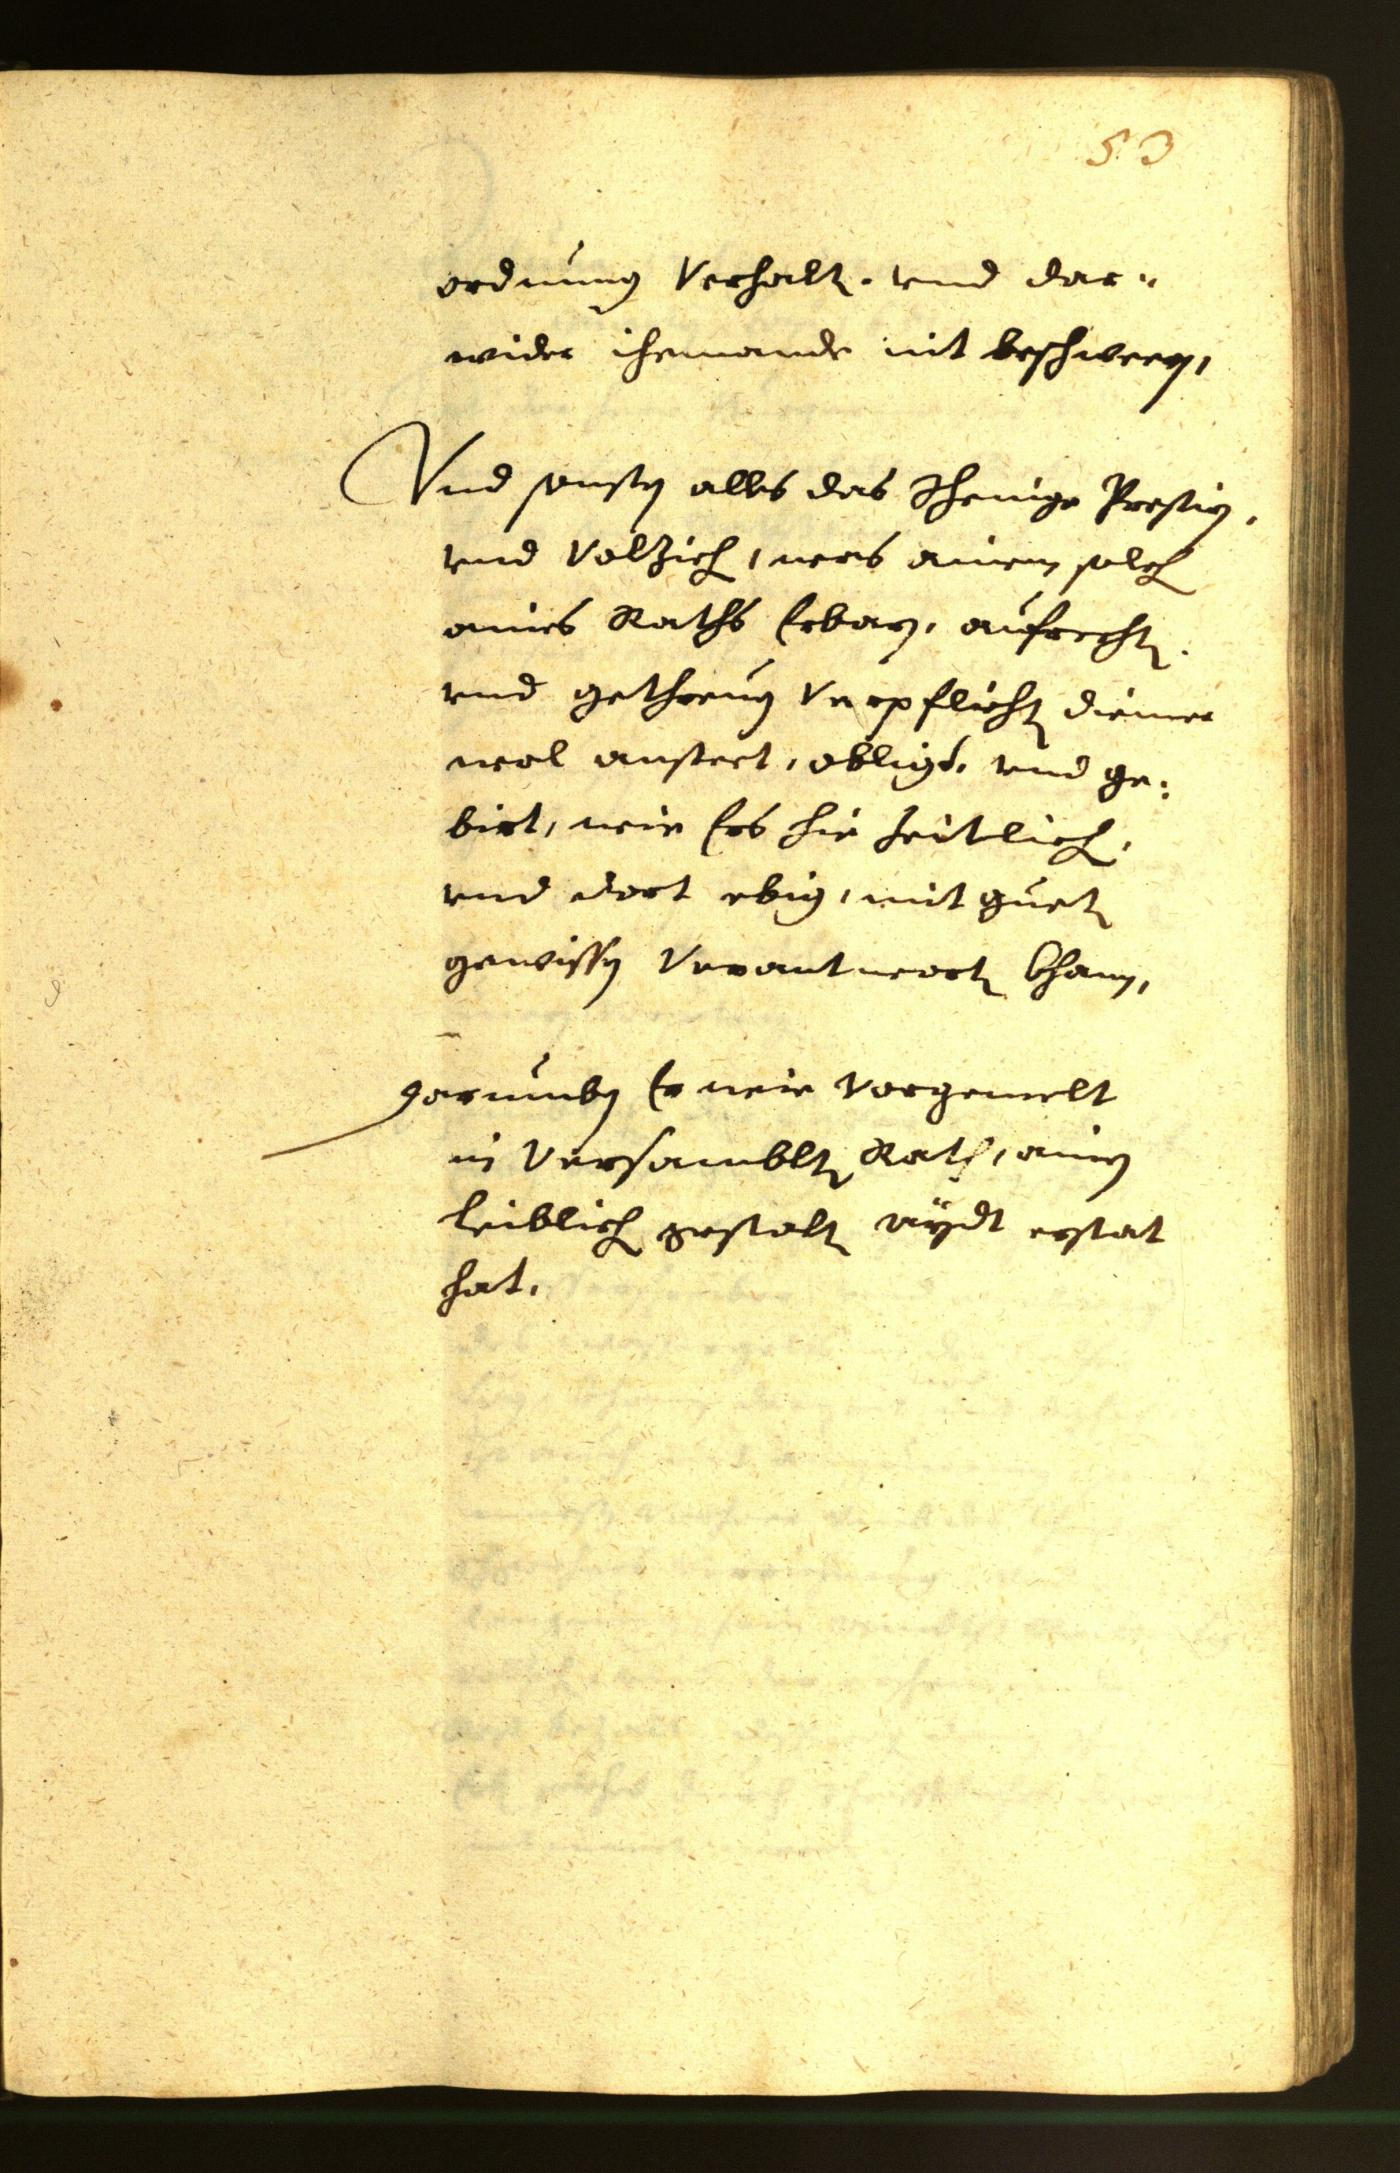 53
ordnung Verhalten. vnd dar¬
wider ihemande nit beschweren,
Vnd sonsten alles das Jhenige Prestiern,
vnd Volziehen, was ainem solchen
aines Raths Erbarn, aufrechten.
vnd gethreuen Verpflichten diener
wol ansteet, obligt, vnd ge:
birt, wie Ers hie Zeitlichen,
vnd dort ebig, mit gueten
gewissen Verantworten khann,
darumben Er wie vorgemelt
in Versamblten Rath, ainen
leiblichen gestalten aÿdt erstat
hat.